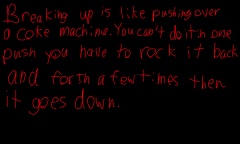 Breaking up is like pushing over
a coke machine. You can't do it in one
push you have to rock it back
and forth a few times then
it goes down.